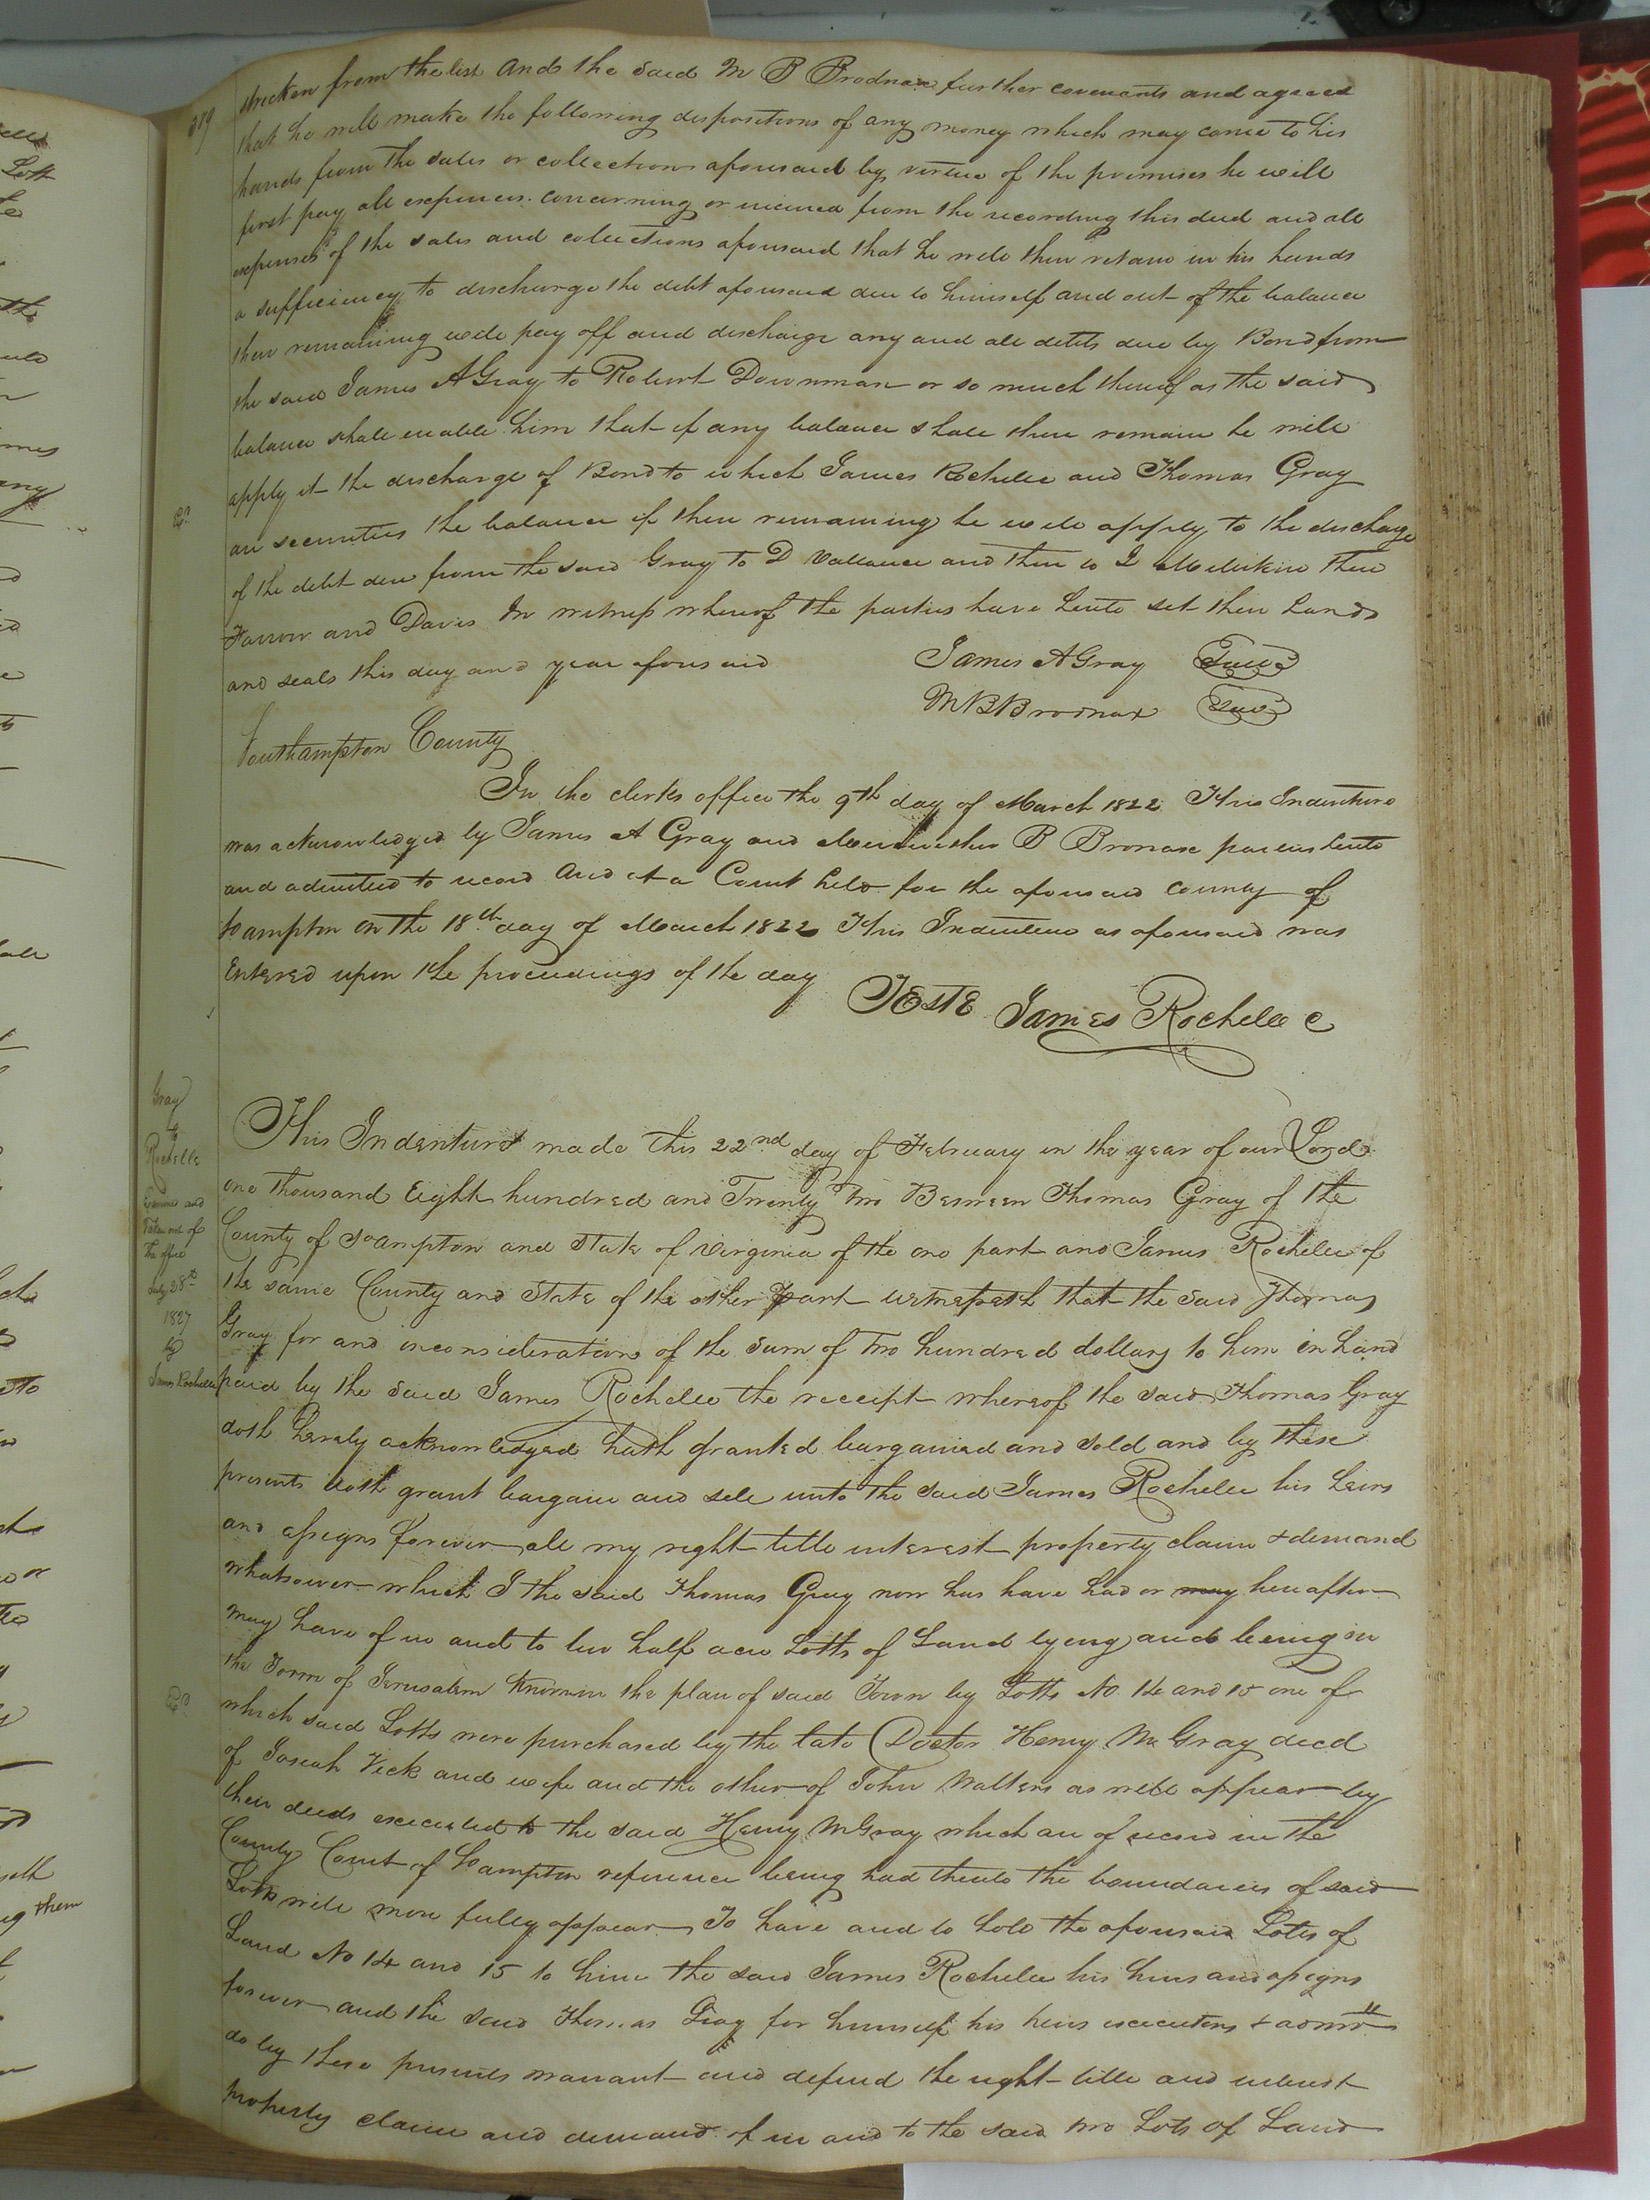 389
stricken from the list and the said M B Brodnax further covenants and agrees
that he will make the following dispositions of any money which may come to his
hands from the sales or collections aforesaid by virtue of the premises he will
first pay all expenses concerning or incured from the recording this deed and all
expenses of the sales and collections aforesaid that he will then retain in his hands
a sufficiency to discharge the debt aforesaid due to himself and out of the balance
then remaining will pay off and discharge any and all debts due by Bond from
the said James A Gray to Robert Downman or so much thereof as the said
balance shall enable him that if any balance shall then remain he will
apply it the discharge of Bond to which James Rochelle and Thomas Gray
are securities the balance if then remaining he will apply to the discharge
of the debt due from the said Gray to D Vallance and then to I then
Farrow and Davis In witness whereof the parties have hereto set their hands
and seals this day and year aforesaid
James A Gray Seal
M B Brodnax Seal
Southampton County
In the clerks office the 9th day of March 1822 This Indenture
was acknowledged by James A Gray and B Brodnax parties hereto
and admitted to record And at a Court held for the aforesaid County of
So ampton on the 18th day of March 1822 This Indenture as aforesaid was
Entered upon the proceedings of the day
TEstE James Rochelle C
Gray
&
Rochelle
Examined and
taken out of
the office
July 28th
1827
by
James Rochelle
This Indenture made this 22nd day of February in the year of our Lord
one thousand Eight hundred and Twenty Two Between Thomas Gray of the
County of So ampton and State of Virginia of the one part and James Rochelle of
the same County and State of the other part witnesseth that the said Thomas
Gray for and inconsideration of the Sum of two hundred dollars to him in hand
paid by the said James Rochelle the receipt whereof the said Thomas Gray
doth hereby acknowledged hath granted bargained and sold and by these
presents doth grant bargain and sell unto the said James Rochelle his heirs
and assigns forever all my right title interest property claim & demand
whatsoever which I the said Thomas Gray now has have had or may hereafter
may have of in and to two half acre Lotts of Land lying and being in
the Town of Jerusalem known in the plan of said Town by Lotts No 14 and 15 one of
which said Lotts were purchased by the late Doctor Henry M Gray decd
of Josiah Vick and wife and the other of John Walters as will appear by
their deeds executed to the said Henry M Gray which are of record in the
County Court of So ampton reference being had thereto the boundaries of said
Lotts will more fully appear To have and to hold the aforesaid Lotts of
Land No 14 and 15 to him the said James Rochelle his heirs and assigns
forever and the said Thomas Gray for himself his heirs executors & admrs
do by these presents warrant and defend the right title and interest
property claim and demand of in and to the said two Lots of Land